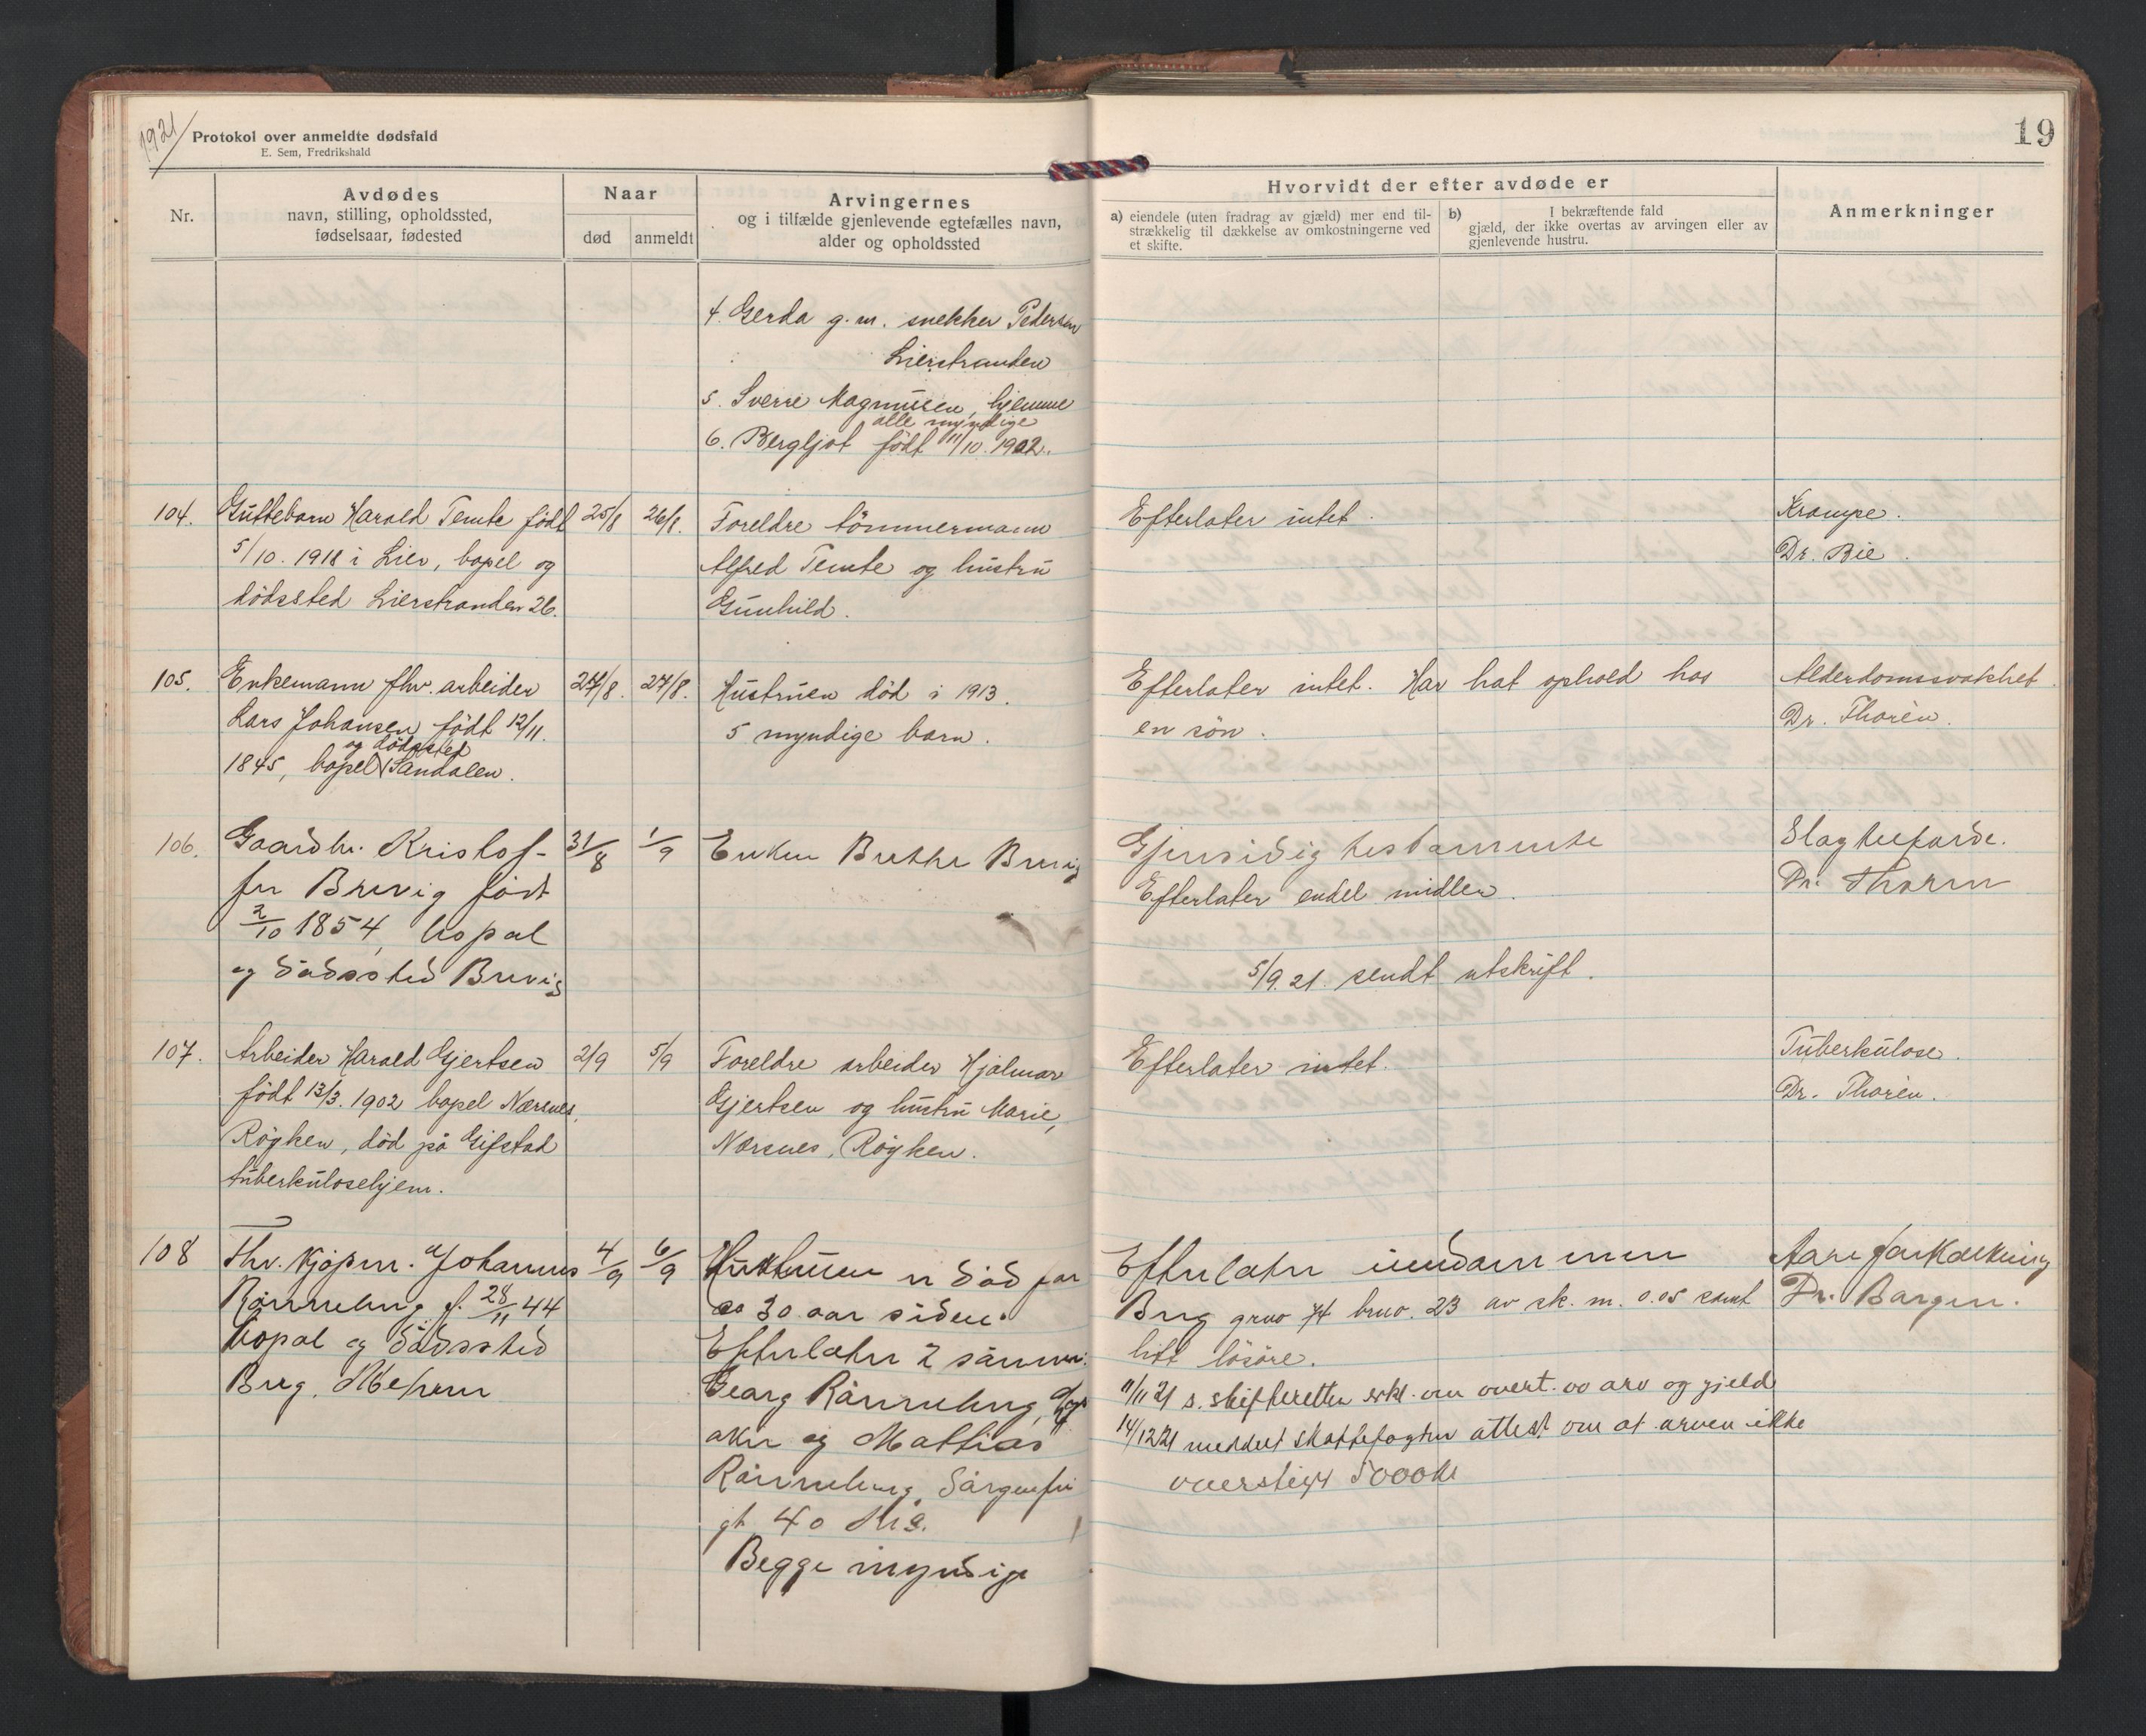 1921
Protokol over anmeldte dødsfald
E. Sem, Fredrikshald
19
Nr.
Avdødes
navn, stilling, opholdssted,
fødselsaar, fødested
Naar
død
anmeldt
Arvingernes
og i tilfælde gjenlevende egtefælles navn,
alder og opholdssted
Hvorvidt der efter avdøde er
a) eiendele (uten fradrag av gjæld) mer end til-
strækkelig til dækkelse av omkostningerne ved
et skifte.
b) I bekræftende fald
gjæld, der ikke overtas av arvingen eller av
gjenlevende hustru.
Anmerkninger
4. Gerda g.m. snekker Pedersen
Lierstranden
5. Sverre Magnusen, hjemme
alle myndige
6. Bergljot født 11/10. 1902.
104.
Guttebarn Harald Temte født
5/10. 1918 i Lier, bopel og
dødssted Lierstranden 26.
25/8
26/8.
Foreldre tømmermann
Alfred Temte og hustru
Gunhild.
Efterlater intet.
Krampe.
Dr. Bie.
105.
Enkemann fhv. arbeider
Lars Johansen født 12/11.
og dødssted
1845, bopel Sandalen.
24/8.
27/8.
Hustruen død i 1913.
5 myndige barn.
Efterlater intet. Har hat ophold hos
en søn.
Alderdomssvakhet.
Dr. Thorèn.
106.
Gaardbr. Kristof-
fer Brevig født
2/10 1854, bopæl
og dødssted Brevig
31/8
1/9
Enken Berthe Brevig
Gjensidig testamente
Efterlater endel midler.
5/9.21. sendt utskrift.
Slagtilfælde.
Dr. Thoren
107.
Arbeider Harald Gjertsen
født 13/3. 1902 bopel Nærsnes,
Røyken, død på Gifstad
tuberkulosehjem.
2/9
5/9
Foreldre arbeider Hjalmar
Gjertsen og hustru Marie,
Nærsnes, Røyken.
Efterlater intet.
Tuberkulose.
Dr. Thorèn.
108
Fhv. kjøpm. Johannes
Rønneberg f. 28/11 44
bopæl og dødssted
Breg,
4/9
6/9
Hustruen er død for
ca 30 aar siden.
Efterlater 2 sønner:
Georg Rønneberg,
aker og Mathias
Rønneberg, Sorgenfri
gt 40 Kra.
Begge myndige
Efterlater eiendommen
Breg grno 74 brno. 23 av sk. m. 0.05 samt
litt løsøre.
11/11 21 s. skifteretten erkl. om overt. av arv og gjeld
14/12 21 meddelt skattefogden attest om at arven ikke
overstiger 5000 kr
Aareforkalkning
Dr. Borgen.